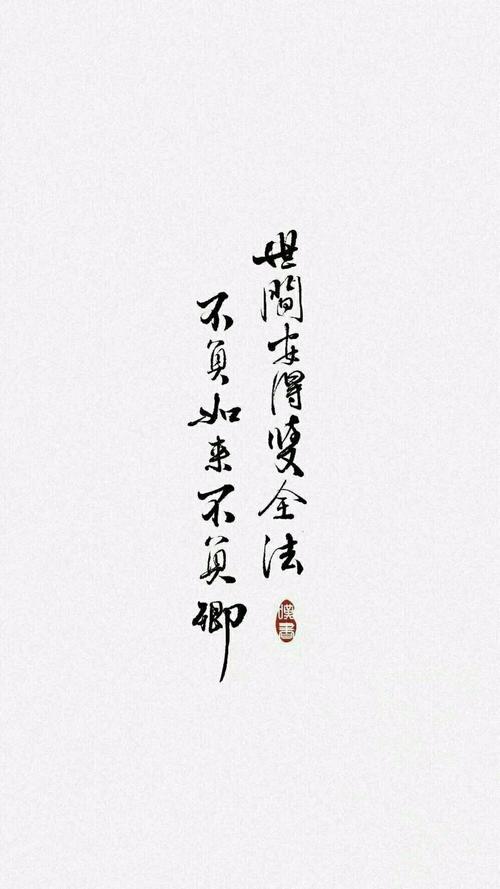 世間安得雙全法
不負如来不負卿